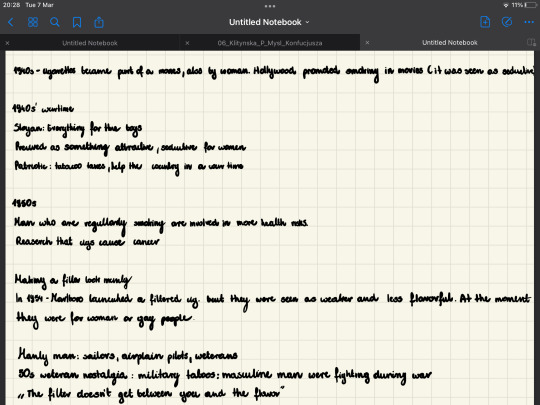 20:28 Tue 7 Mar
11%
Untitled Notebook
Untitled Notebook
06_Klitynska_P_Mysl_Konfucjusza
Untitled Notebook
- cigarettes became part of a moves, alos by woman. Hollywood promoted smoking in movies (it was seen as seductive
1940s' wartime
Slogan: Everything for the boys
as something attractive, seductive for women
Patriotic: tobacco taxes, help the country in a war time
1950s
Man who are regullardy smoking are involved in more health risks.
Reaserch that cigs cause cancer
Making a filter look manly
In 1954 - Marlboro launched a filtered cig. but they were seen as weaker and less flavorful. At the moment
they were for woman or gay people.
Manly man: sailors, airplain pilots, weterans
50s weteran nostalgia: military taboos: masculine man were fighting during war
„The filter doesn't get between you and the flavor"